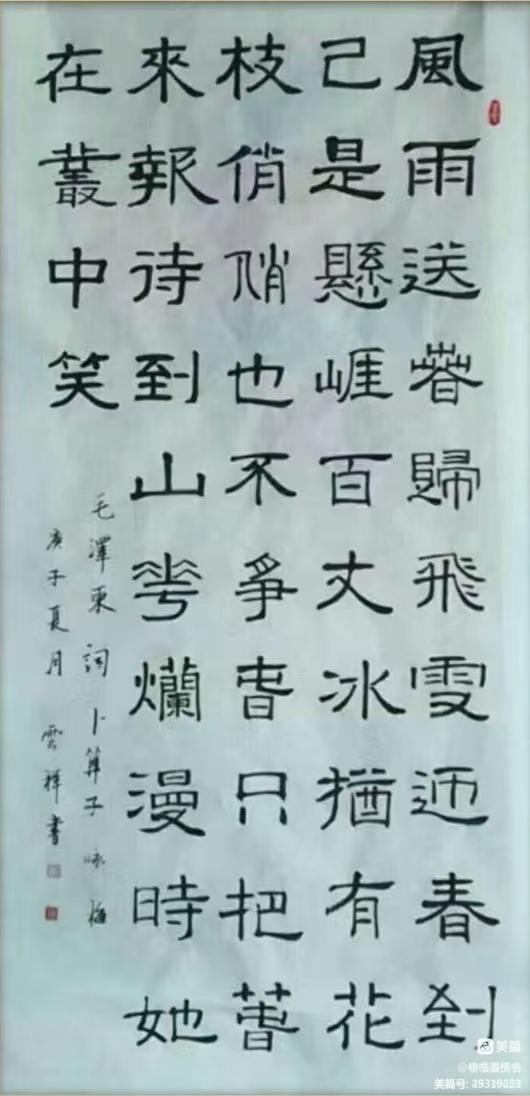 風雨送萅歸飛雪迎春到
己是懸崕百丈冰猶有花
枝俏俏也不爭旾只把萅
來報待到山花爛漫時她
在叢中笑
毛澤東詞 卜算子 咏梅
庚子夏月 雲祥書
美篇
美篇号: